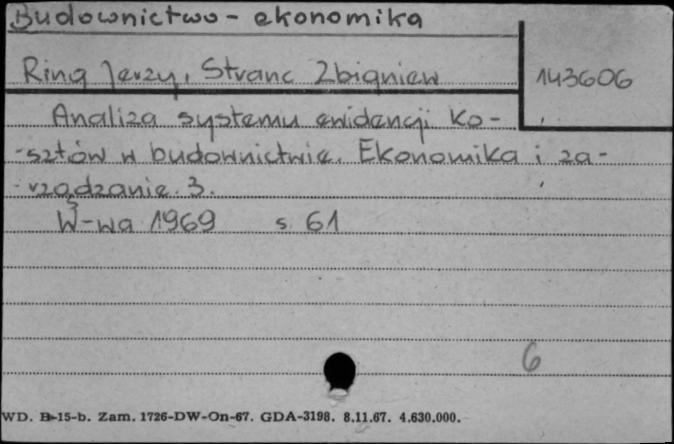 Budownictwo - ekonomika
Ring Jerzy, Stranc Zbigniew
143606
Analiza systemu ewidencji ko-
-sztów w budownictwie. Ekonomika i za-
-rządzanie. 3.
W-wa 1969 s. 61
6
WD. B-15-b. Zam. 1726-DW-On-67. GDA-3198. 8.11.67. 4.630.000.